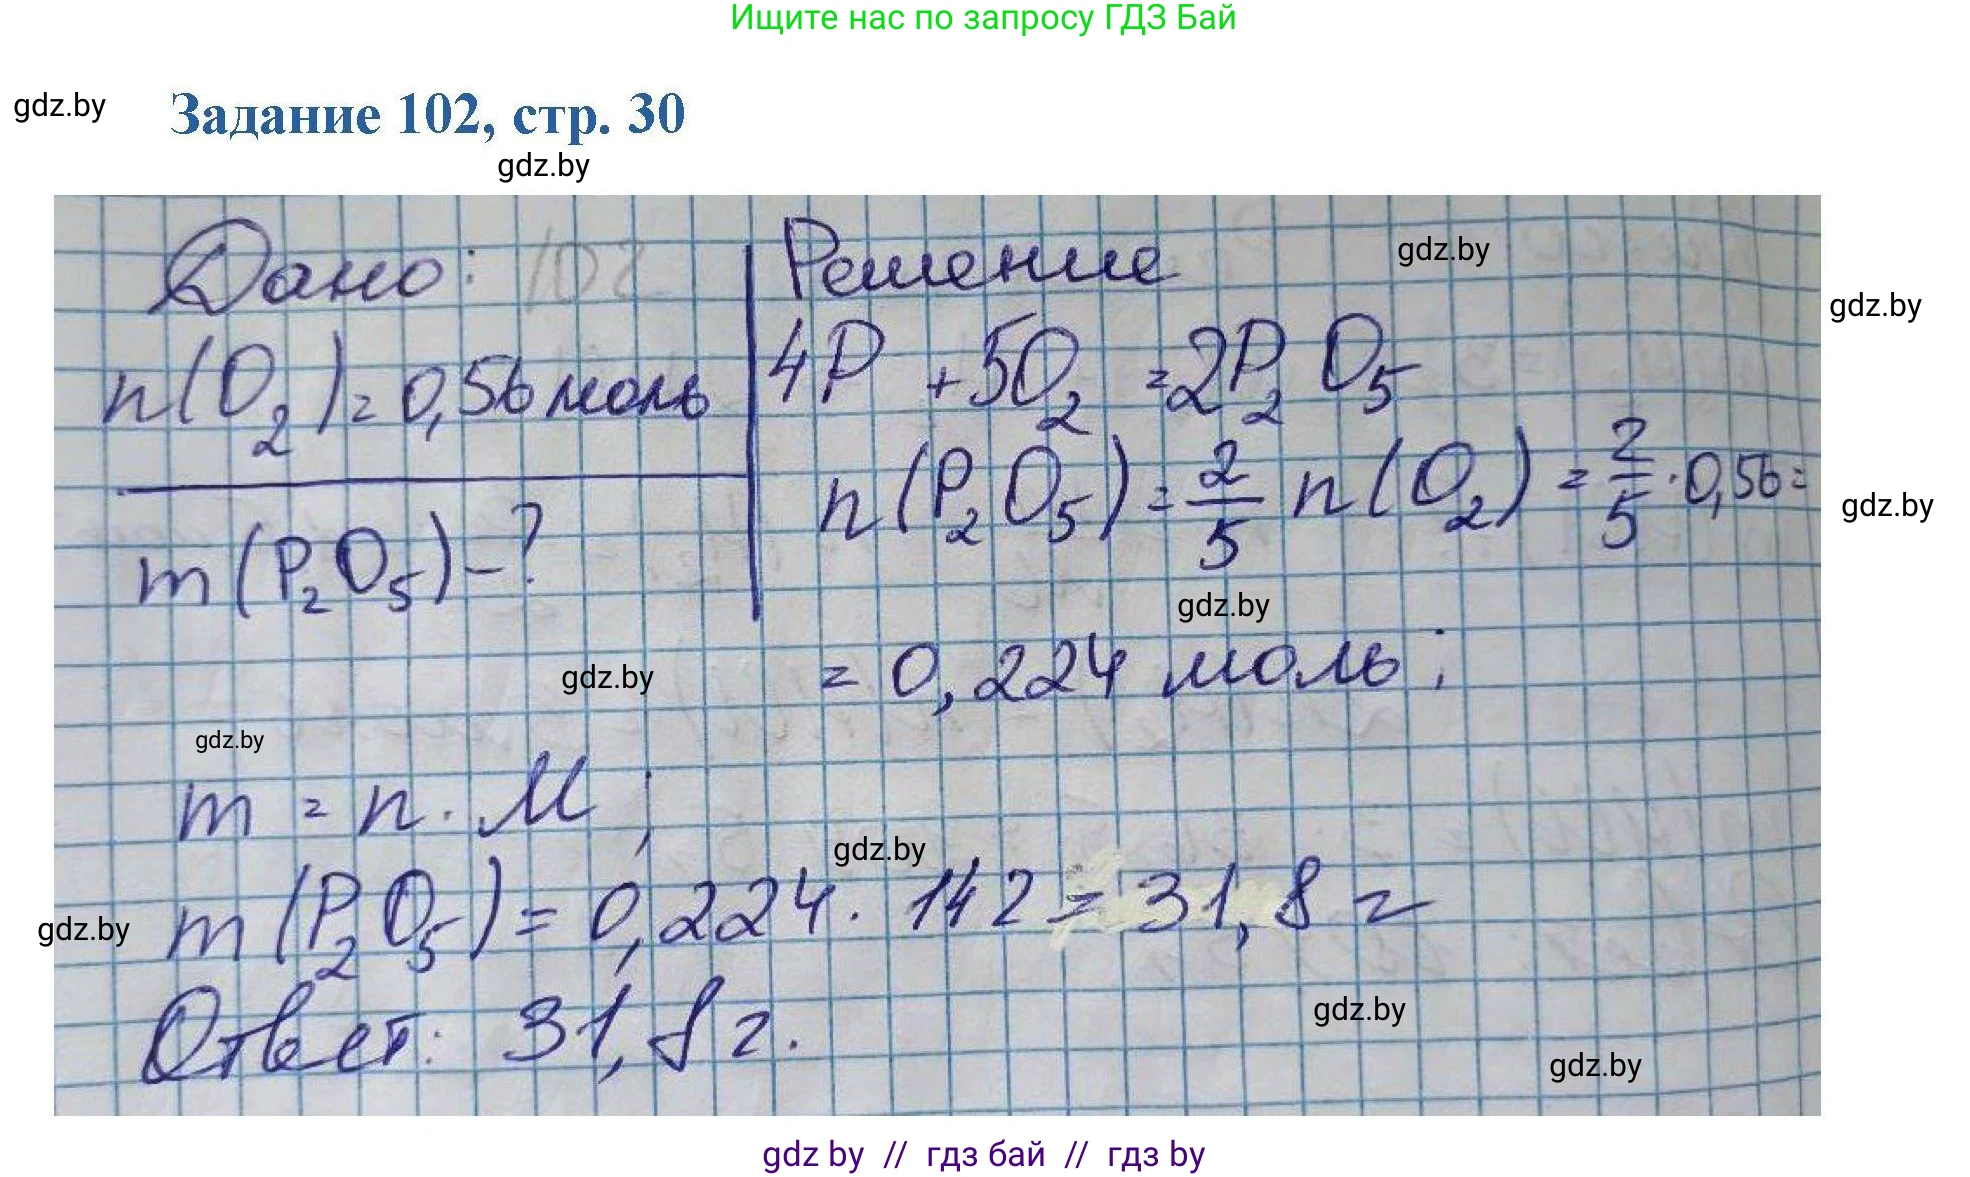 Ищите нас по запросу ГДЗ Бай
gdz.by
Задание 102, стр. 30
gdz.by
Дано: 102
Решение
gdz.by
gdz.by
n(O₂) = 0,56 моль
4P + 5O₂ = 2P₂O₅
m(P₂O₅) - ?
n(P₂O₅) = 2/5 n(O₂) = 2/5 · 0,56 =
gdz.by
gdz.by
= 0,224 моль;
gdz.by
gdz.by
m = n · M;
gdz.by
m(P₂O₅) = 0,224 · 142 = 31,8 г
gdz.by
Ответ: 31,8 г.
gdz.by
gdz.by
gdz by // гдз бай // гдз by